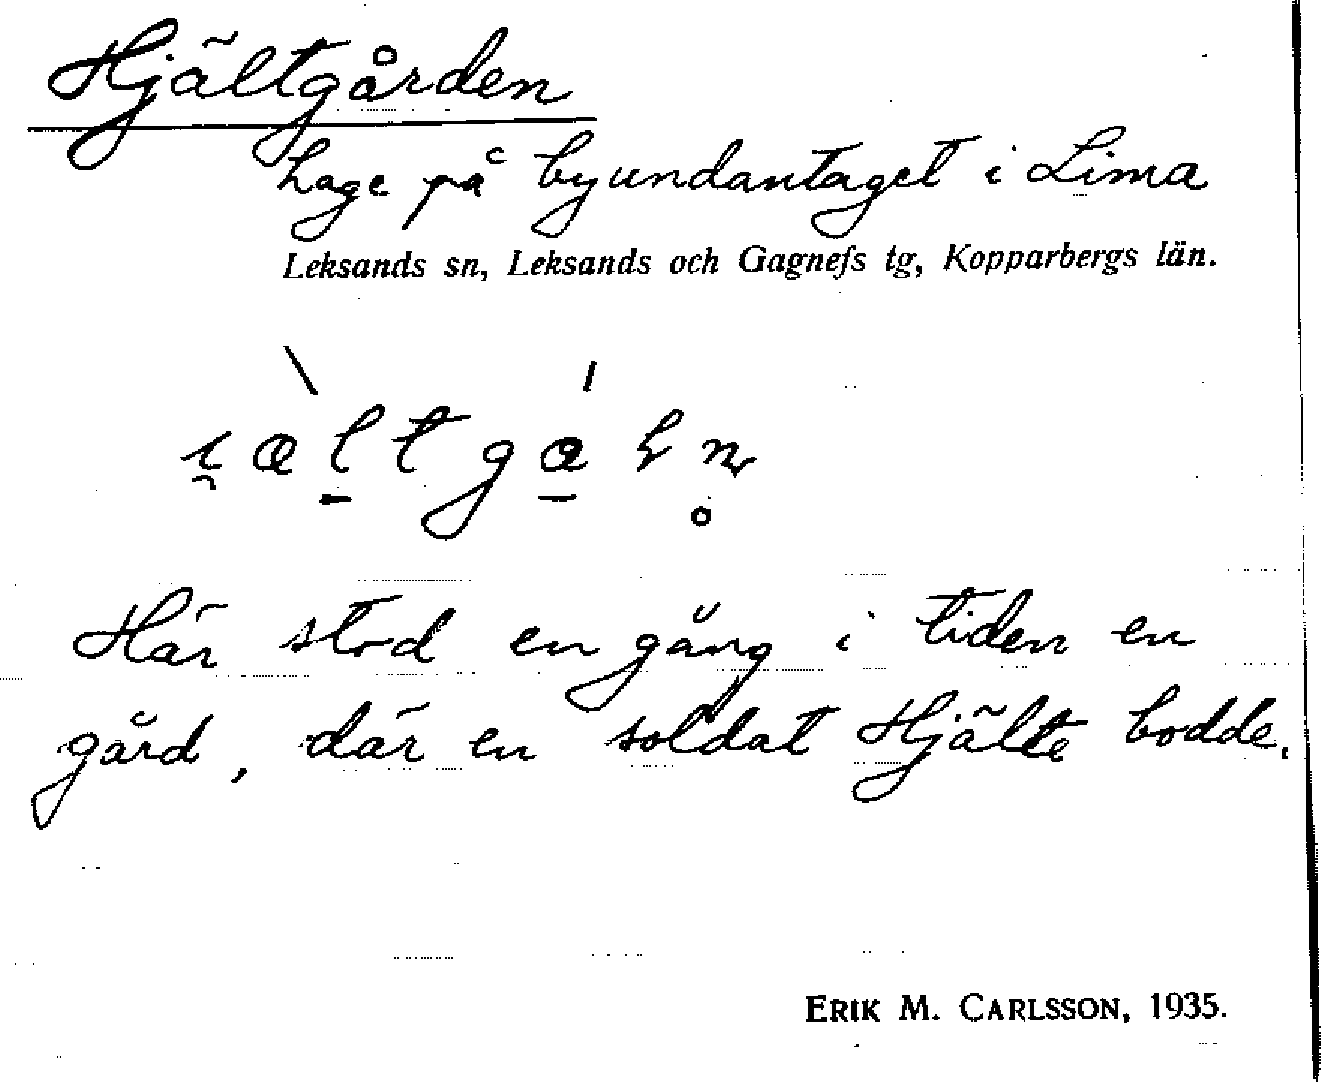 Hjältgården
hage på byundantaget i Lima
Leksands sn, Leksands och Gagnefs tg, Kopparbergs län.
Här stod en gång i tiden en
gård, där en soldat Hjälte bodde.
ERIK M. CARLSSON, 1935.